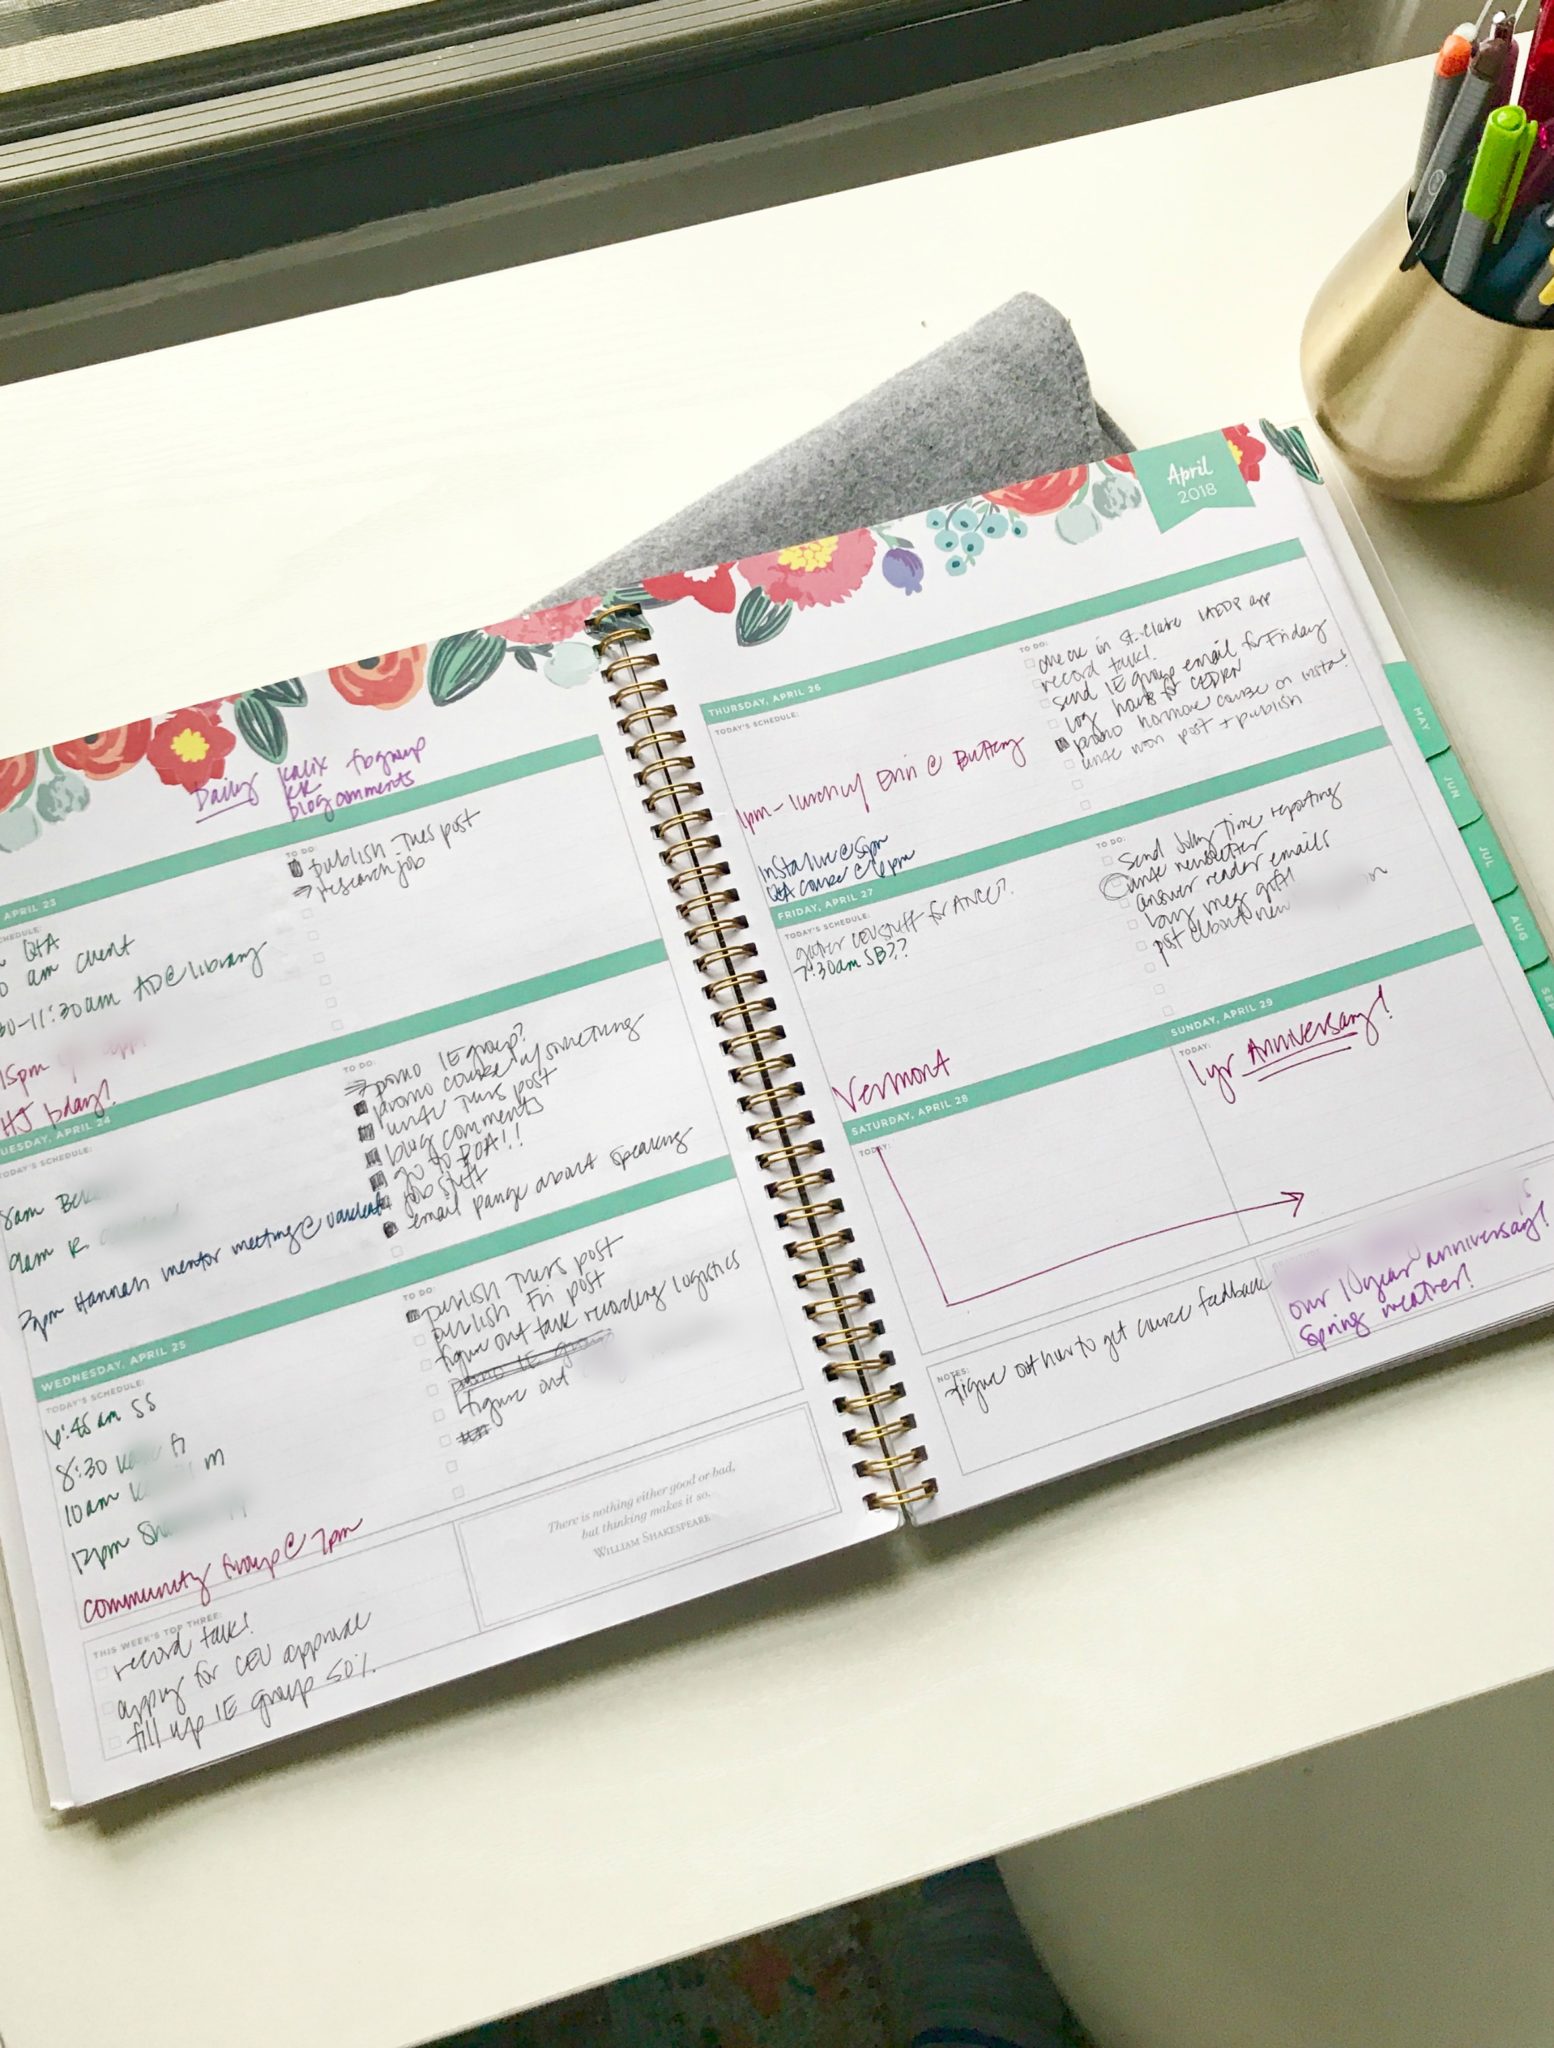 Daily Kalix fbgroup
KR
blog comments
APRIL 23
TO DO:
publish Tues post
research job
SCHEDULE:
Q+A
am client
30-11:30am AD@library
15pm
HJ bday!
TUESDAY, APRIL 24
TODAY'S SCHEDULE:
8am
9am K
3pm Hannah mentor meeting @
TO DO:
promo IE group?
promo course w/something
write Thurs post
blog comments
go to POA!!
job stuff
email pange about speaking
WEDNESDAY, APRIL 25
TODAY'S SCHEDULE:
6:45am SS
8:30
10am K
12pm Sh
community group @ 7pm
TO DO:
publish Thurs post
publish Fri post
figure out talk recording logistics
promo IE group
figure out
THIS WEEK'S TOP THREE:
record talk!
apply for CEU approval
fill up IE group 50%
There is nothing either good or bad,
but thinking makes it so.
WILLIAM SHAKESPEARE
April
2018
THURSDAY, APRIL 26
TODAY'S SCHEDULE:
1pm - lunch w/ Erin @ Buttery
Insta live @ 5pm
Q+A course @ 6pm
TO DO:
check in St. Claire IAEDP app
record talk!
send IE group email for Friday
log hours for CEDRN
promo hormone course on insta!
write mon post + publish
FRIDAY, APRIL 27
TODAY'S SCHEDULE:
gather CEU stuff for
7:30am SB??
Vermont
TO DO:
send July time reporting
write newsletter
answer reader emails
buy meg gift!
post about new
SATURDAY, APRIL 28
TODAY:
SUNDAY, APRIL 29
TODAY:
1yr Anniversary!
NOTES:
figure out how to get course feedback
our 10 year anniversary!
Spring weather!
MAY
JUN
JUL
AUG
SEP